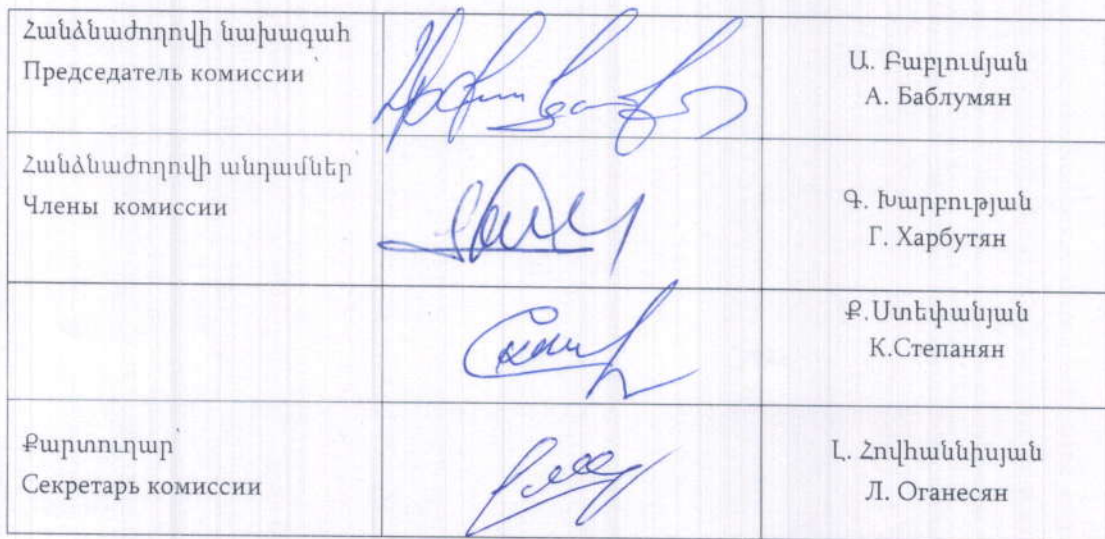 Հանձնաժողովի նախագահ՝
Председатель комиссии
Ա. Բաբլումյան
А. Баблумян
Հանձնաժողովի անդամներ՝
Члены комиссии
Գ. Խարբության
Г. Харбутян
Ք.Ստեփանյան
К.Степанян
Քարտուղար՝
Секретарь комиссии
Լ. Հովհաննիսյան
Л. Оганесян